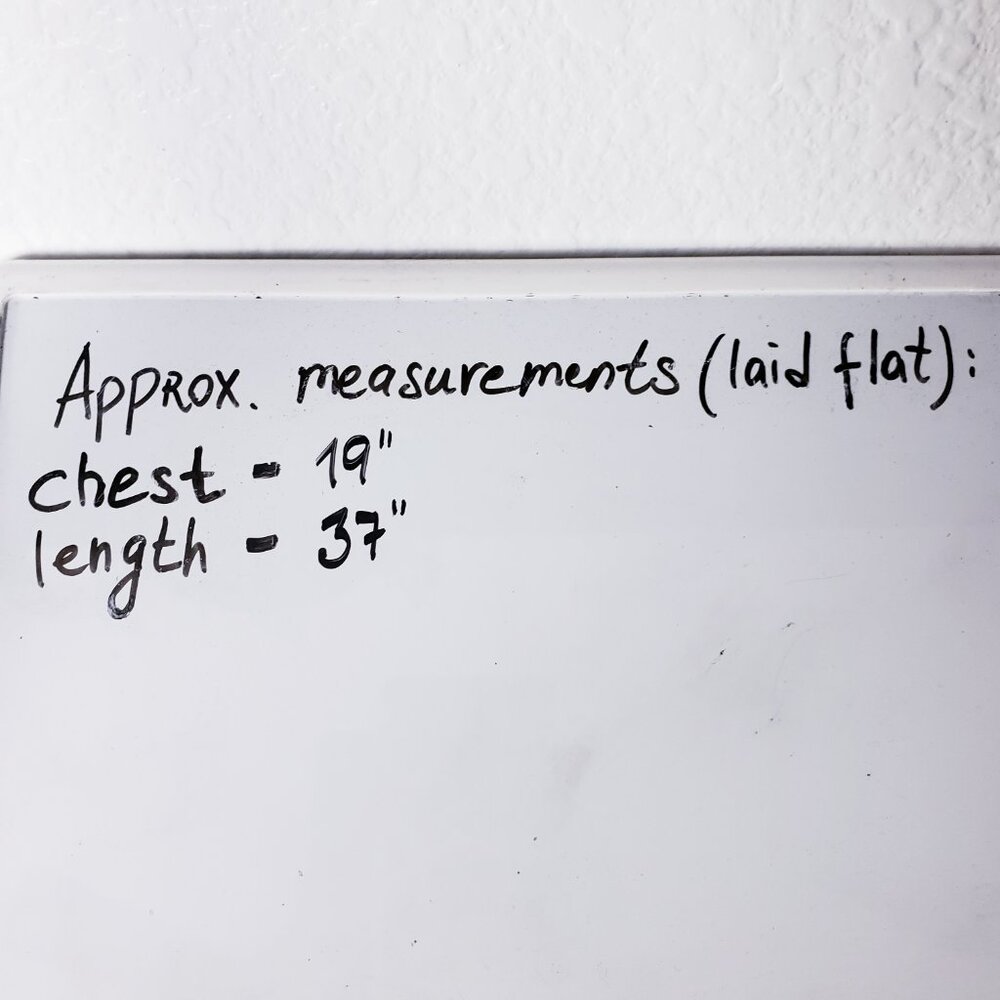 Approx. measurements (laid flat):
chest - 19"
length - 37"